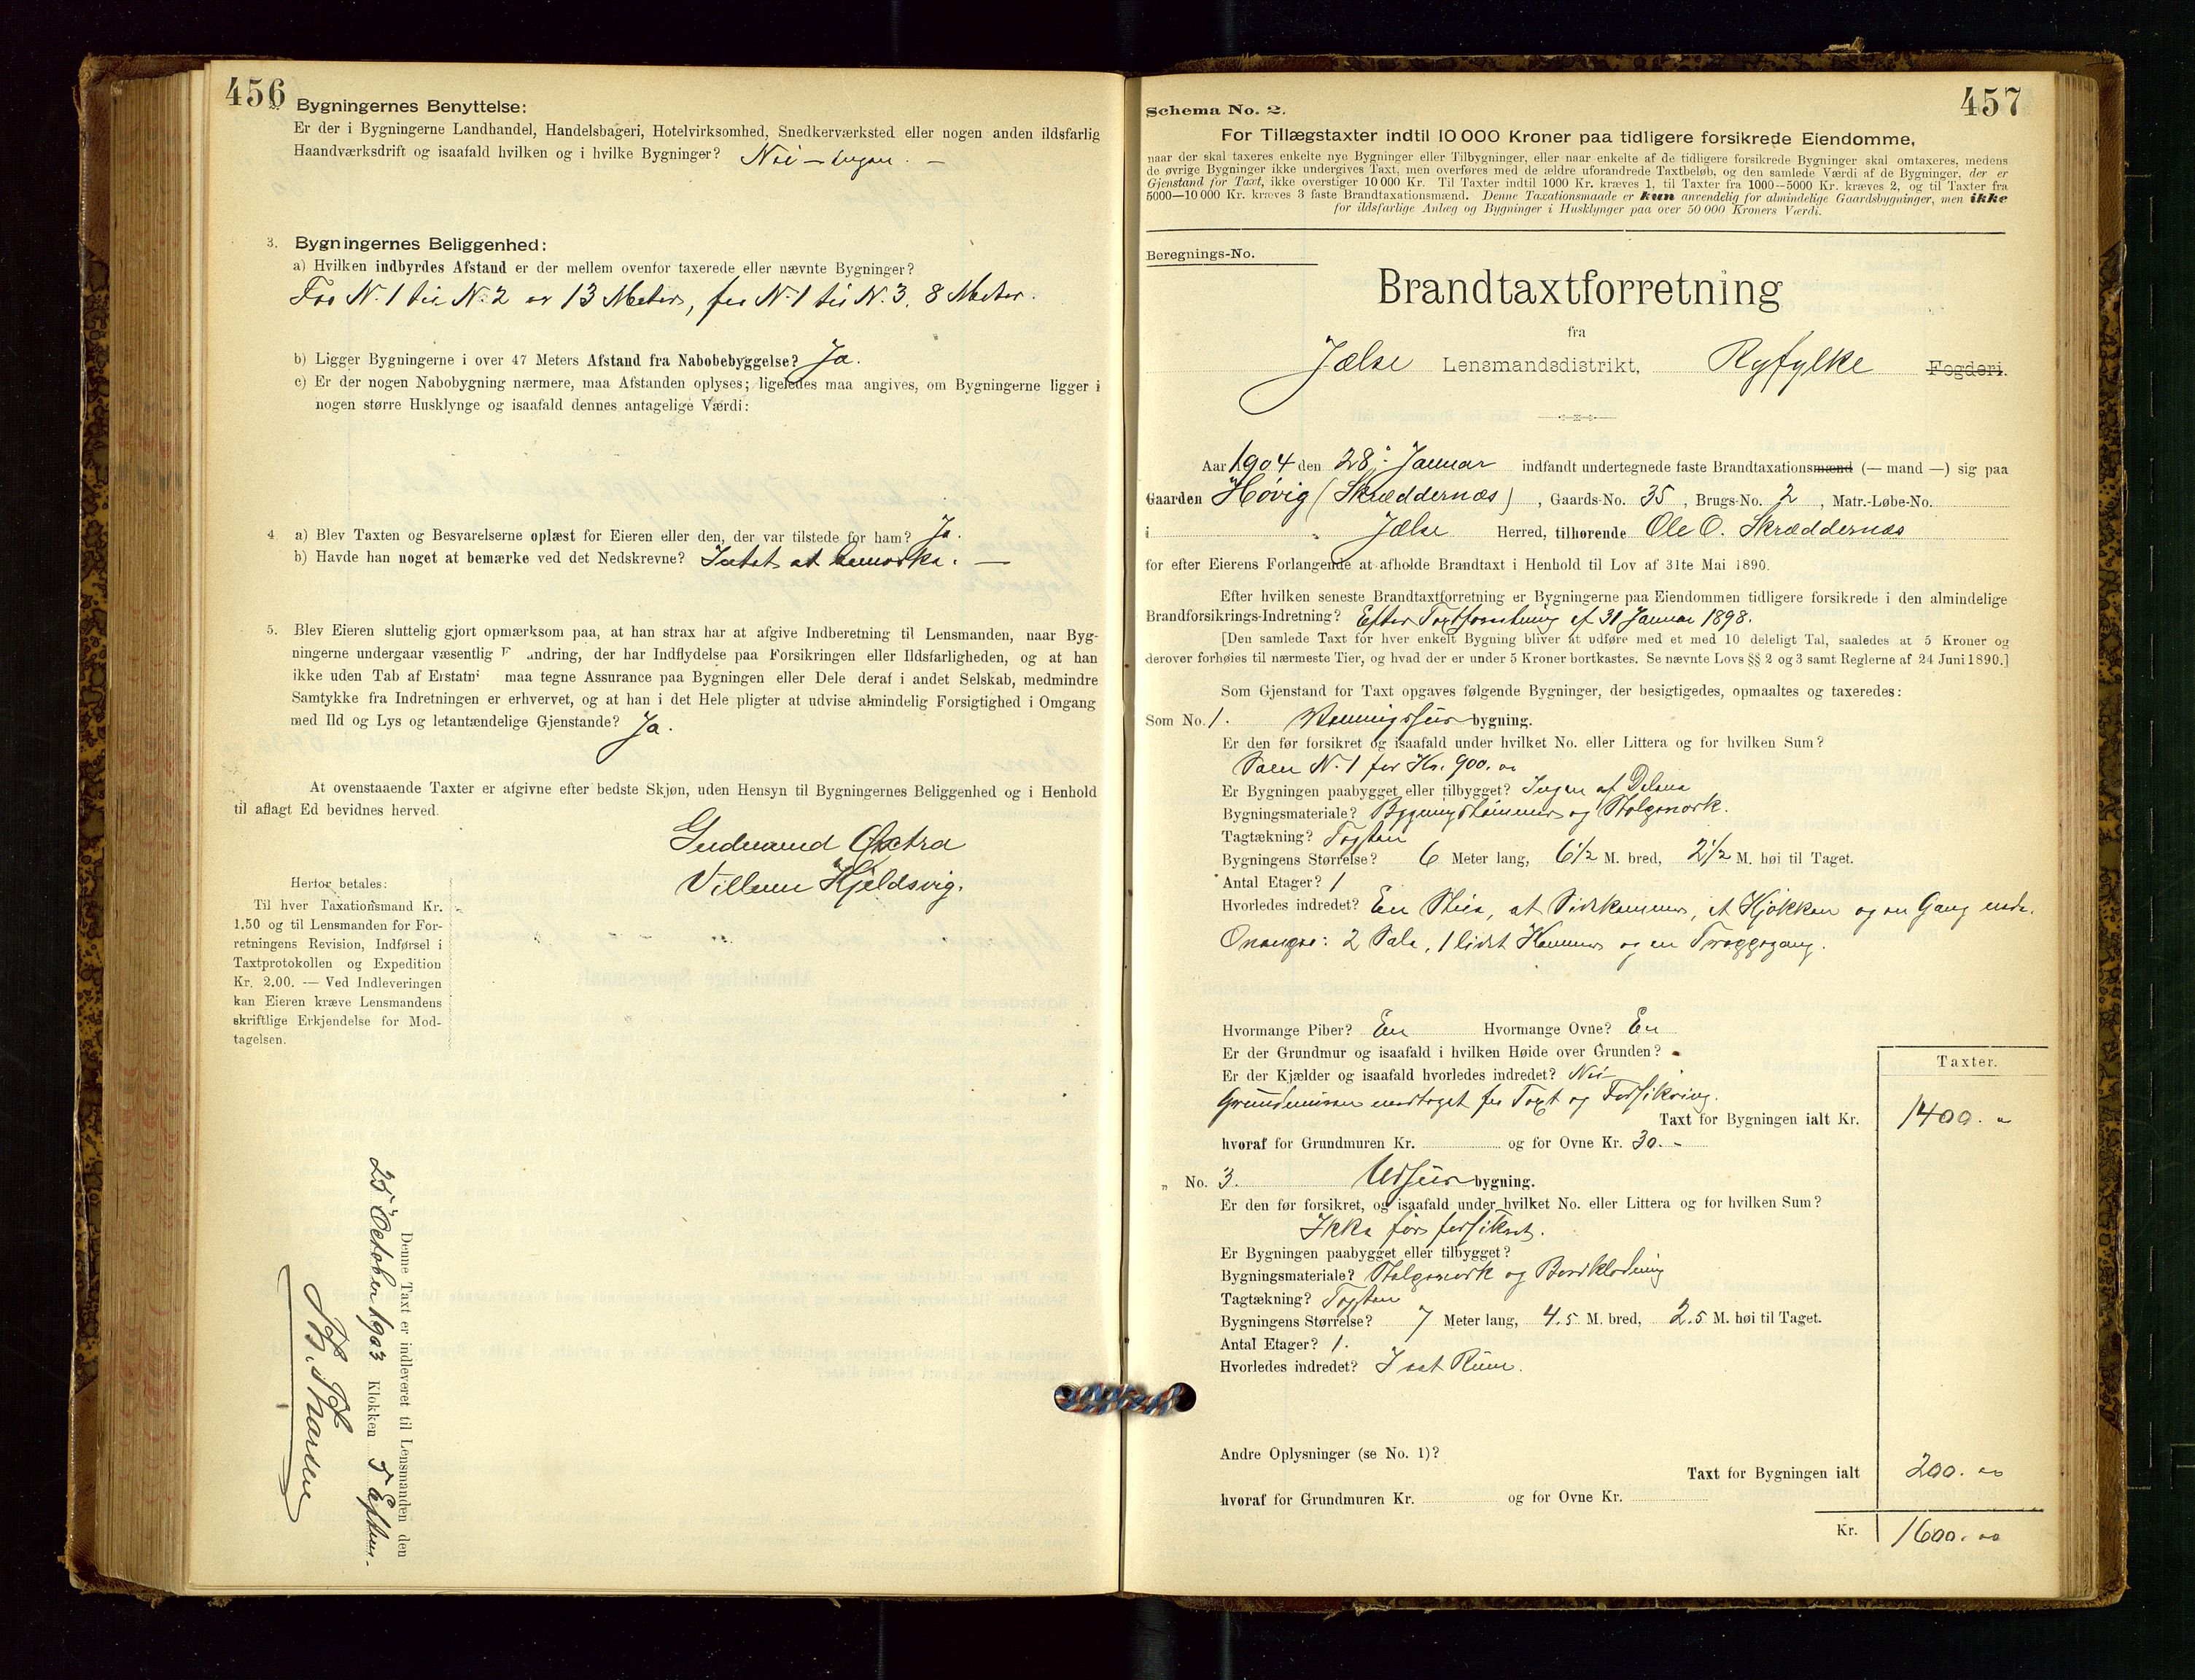 456
2. Bygningernes Benyttelse:
Er der i Bygningerne Landhandel, Handelsbageri, Hotelvirksomhed, Snedkerværksted eller nogen anden ildsfarlig
Haandværksdrift og isaafald hvilken og i hvilke Bygninger? Nei - ingen. -
3. Bygningernes Beliggenhed:
a) Hvilken indbyrdes Afstand er der mellem ovenfor taxerede eller nævnte Bygninger?
Fra N. 1 til N. 2 er 13 Meter, fra N. 1 til N. 3, 8 Meter.
b) Ligger Bygningerne i over 47 Meters Afstand fra Nabobebyggelse? Ja.
c) Er der nogen Nabobygning nærmere, maa Afstanden oplyses; ligeledes maa angives, om Bygningerne ligger i
nogen større Husklynge og isaafald dennes antagelige Værdi:
4 a) Blev Taxten og Besvarelserne oplæst for Eieren eller den, der var tilstede for ham? Ja.
b) Havde han noget at bemærke ved det Nedskrevne? Intet at bemærke. —
5. Blev Eieren sluttelig gjort opmærksom paa, at han strax har at afgive Indberetning til Lensmanden, naar Byg-
ningerne undergaar væsentlig F andring, der har Indflydelse paa Forsikringen eller Ildsfarligheden, og at han
ikke uden Tab af Erstatn maa tegne Assurance paa Bygningen eller Dele deraf i andet Selskab, medmindre
Samtykke fra Indretningen er erhvervet, og at han i det Hele pligter at udvise almindelig Forsigtighed i Omgang
med Ild og Lys og letantændelige Gjenstande? Ja.
At ovenstaaende Taxter er afgivne efter bedste Skjøn, uden Hensyn til Bygningernes Beliggenhed og i Henhold
til aflagt Ed bevidnes herved.
Gudmund Østrø
Villum Hjeldsvig.
Herfor betales:
Til hver Taxationsmand Kr.
1.50 og til Lensmanden for For-
retningens Revision, Indførsel i
Taxtprotokollen og Expedition
Kr. 2.00. — Ved Indleveringen
kan Eieren kræve Lensmandens
skriftlige Erkjendelse for Mod-
tagelsen.
Denne Taxt er indleveret til Lensmanden den
25 October 1903 Klokken 5 Efterm.
457
Schema No. 2.
For Tillægstaxter indtil 10 000 Kroner paa tidligere forsikrede Eiendomme,
naar der skal taxeres enkelte nye Bygninger eller Tilbygninger, eller naar enkelte af de tidligere forsikrede Bygninger skal omtaxeres, medens
de øvrige Bygninger ikke undergives Taxt, men overføres med de ældre uforandrede Taxtbeløb, og den samlede Værdi af de Bygninger, der er
Gjenstand for Taxt, ikke overstiger 10 000 Kr. Til Taxter indtil 1000 Kr. kræves 1, til Taxter fra 1000—5000 Kr. kræves 2, og til Taxter fra
5000—10 000 Kr. kræves 3 faste Brandtaxationsmænd. Denne Taxationsmaade er kun anvendelig for almindelige Gaardsbygninger, men ikke
for ildsfarlige Anlæg og Bygninger i Husklynger paa over 50 000 Kroners Værdi.
Beregnings-No.
Brandtaxtforretning
fra
Jælse Lensmandsdistrikt, Ryfylke Fogderi.
Aar 1904 den 28. Januar indfandt undertegnede faste Brandtaxationsmænd (— mand —) sig paa
Gaarden Høvig (Skræddernæs), Gaards-No. 35, Brugs-No. 2, Matr.-Løbe-No.
i Jælse Herred, tilhørende Ole O. Skræddernæs
for efter Eierens Forlangende at afholde Brandtaxt i Henhold til Lov af 31te Mai 1890.
Efter hvilken seneste Brandtaxtforretning er Bygningerne paa Eiendommen tidligere forsikrede i den almindelige
Brandforsikrings-Indretning? Efter Taxtforretning af 31 Januar 1898.
[Den samlede Taxt for hver enkelt Bygning bliver at udføre med et med 10 deleligt Tal, saaledes at 5 Kroner og
derover forhøies til nærmeste Tier, og hvad der er under 5 Kroner bortkastes. Se nævnte Lovs §§ 2 og 3 samt Reglerne af 24 Juni 1890.]
Som Gjenstand for Taxt opgaves følgende Bygninger, der besigtigedes, opmaaltes og taxeredes:
Som No. 1. Vaaningshus bygning.
Er den før forsikret og isaafald under hvilket No. eller Littera og for hvilken Sum?
Som N. 1 for Kr. 900.00
Er Bygningen paabygget eller tilbygget? Ingen af Delene
Bygningsmateriale? Bygningstømmer og Stolpeverk.
Tagtækning? Tagsten
Bygningens Størrelse? 6 Meter lang, 6 1/2 M. bred, 2 1/2 M. høi til Taget.
Antal Etager? 1
Hvorledes indredet? En Stue, et Sidekammer, et Kjøkken og en Gang nede.
Ovenpaa: 2 Sale, 1 lidet Kammer og en Trappegang.
Hvormange Piber? En Hvormange Ovne? En
Er der Grundmur og isaafald i hvilken Høide over Grunden?
Er der Kjælder og isaafald hvorledes indredet? Nei
Grundmuren undtaget fra Taxt og Forsikring.
Taxter.
Taxt for Bygningen ialt Kr. 1400. "
hvoraf for Grundmuren Kr. og for Ovne Kr. 30.-
" No. 3. Udhus bygning.
Er den før forsikret, og isaafald under hvilket No. eller Littera og for hvilken Sum?
Ikke før forsikret.
Er Bygningen paabygget eller tilbygget?
Bygningsmateriale? Stolpeverk og Bordklædning
Tagtækning? Tagsten
Bygningens Størrelse? 7 Meter lang, 4.5 M. bred, 2.5 M. høi til Taget.
Antal Etager? 1.
Hvorledes indredet? I eet Rum.
Andre Oplysninger (se No. 1)?
Taxt for Bygningen ialt 200. 00
hvoraf for Grundmuren Kr. og for Ovne Kr.
Kr. 1600. 00